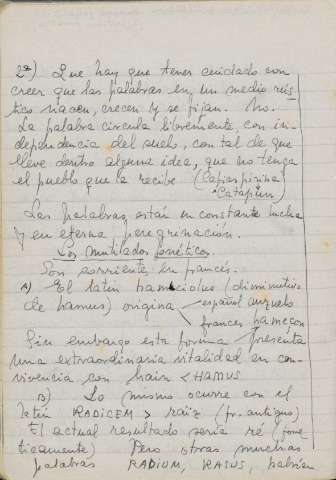 2ª) Que hay que tener cuidado con
creer que las palabras en un medio rús-
tico nacen, crecen y se fijan. No.
La palabra circula libremente, con in-
dependencia del suelo, con tal de que
lleve dentro alguna idea, que no tenga
el pueblo que la recibe (Cafiaspirina
Catapún)
Las palabras están en constante lucha
y en eterna peregrinación.
Los mutilados fonéticos.
Son corriente, en francés.
A) El latín hamiciolus (diminutivo
de hamus) origina español anzuelo
frances hameçon
Sin embargo esta forma presenta
una extraordinaria vitalidad en con-
vivencia con haim < HAMUS
B) Lo mismo ocurre con el
latín RADICEM > raiz (fr. antiguo)
El actual resultado sería ré (foné
ticamente) Pero otras muchas
palabras RADIUM, RASUS, habían